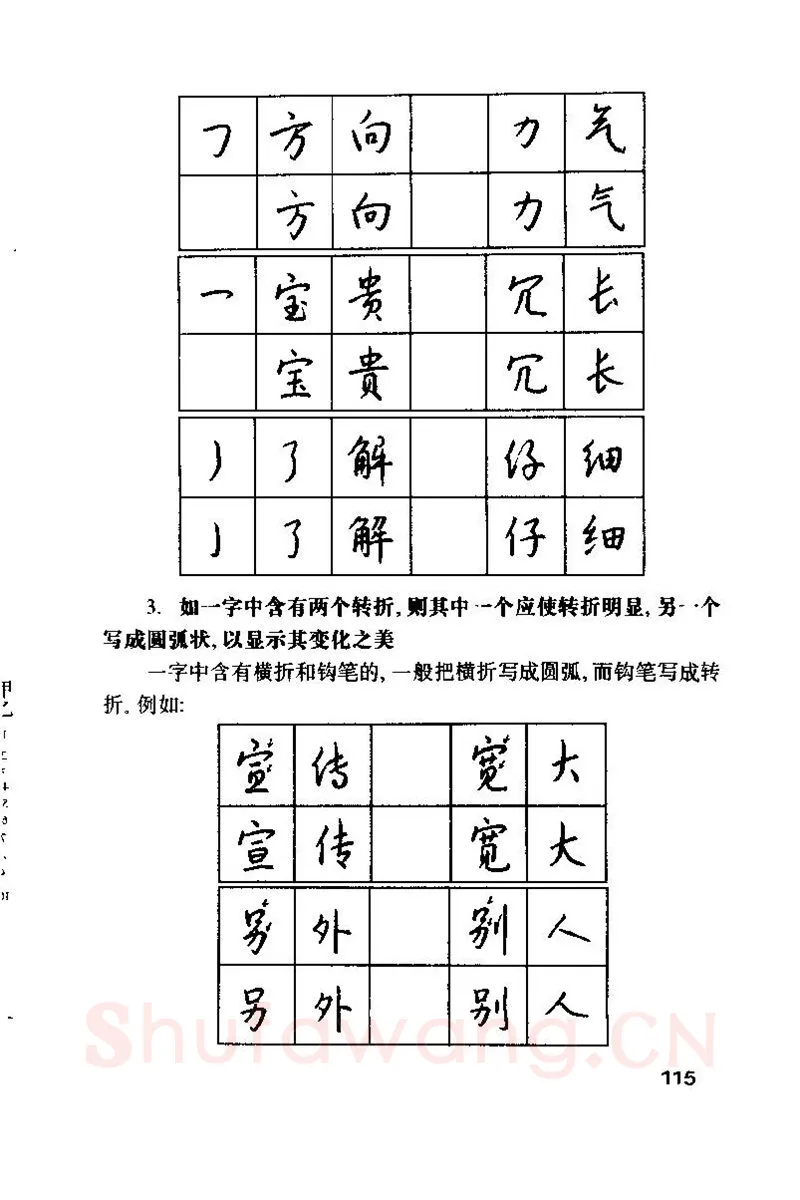 ㇆ 方 向 力 气
方 向 力 气
冖 宝 贵 冗 长
宝 貴 冗 长
亅 了 解 仔 细
亅 了 解 仔 细
3. 如一字中含有两个转折,则其中一个应使转折明显,另一个
写成圆弧状,以显示其变化之美
一字中含有横折和钩笔的,一般把横折写成圆弧,而钩笔写成转
折。例如:
宣 传 宽 大
宣 传 宽 大
另 外 别 人
另 外 别 人
Shufawang.CN
115